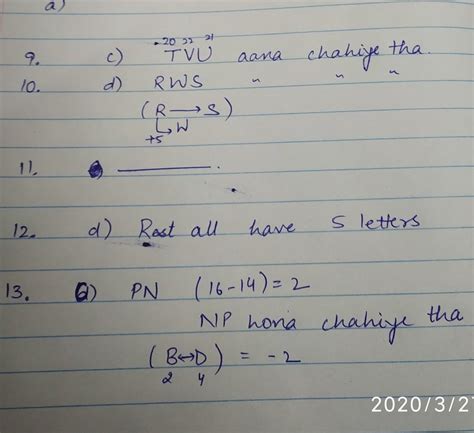 a)
20 22 21
9. c) TVU aana chahiye tha.
10. d) RWS " " "
(R → S)
+5 ↳ W
11. ———.
12. d) Rest all have 5 letters
13. a) PN (16-14) = 2
NP hona chahiye tha
(B↔D) = -2
2 4
2020/3/27